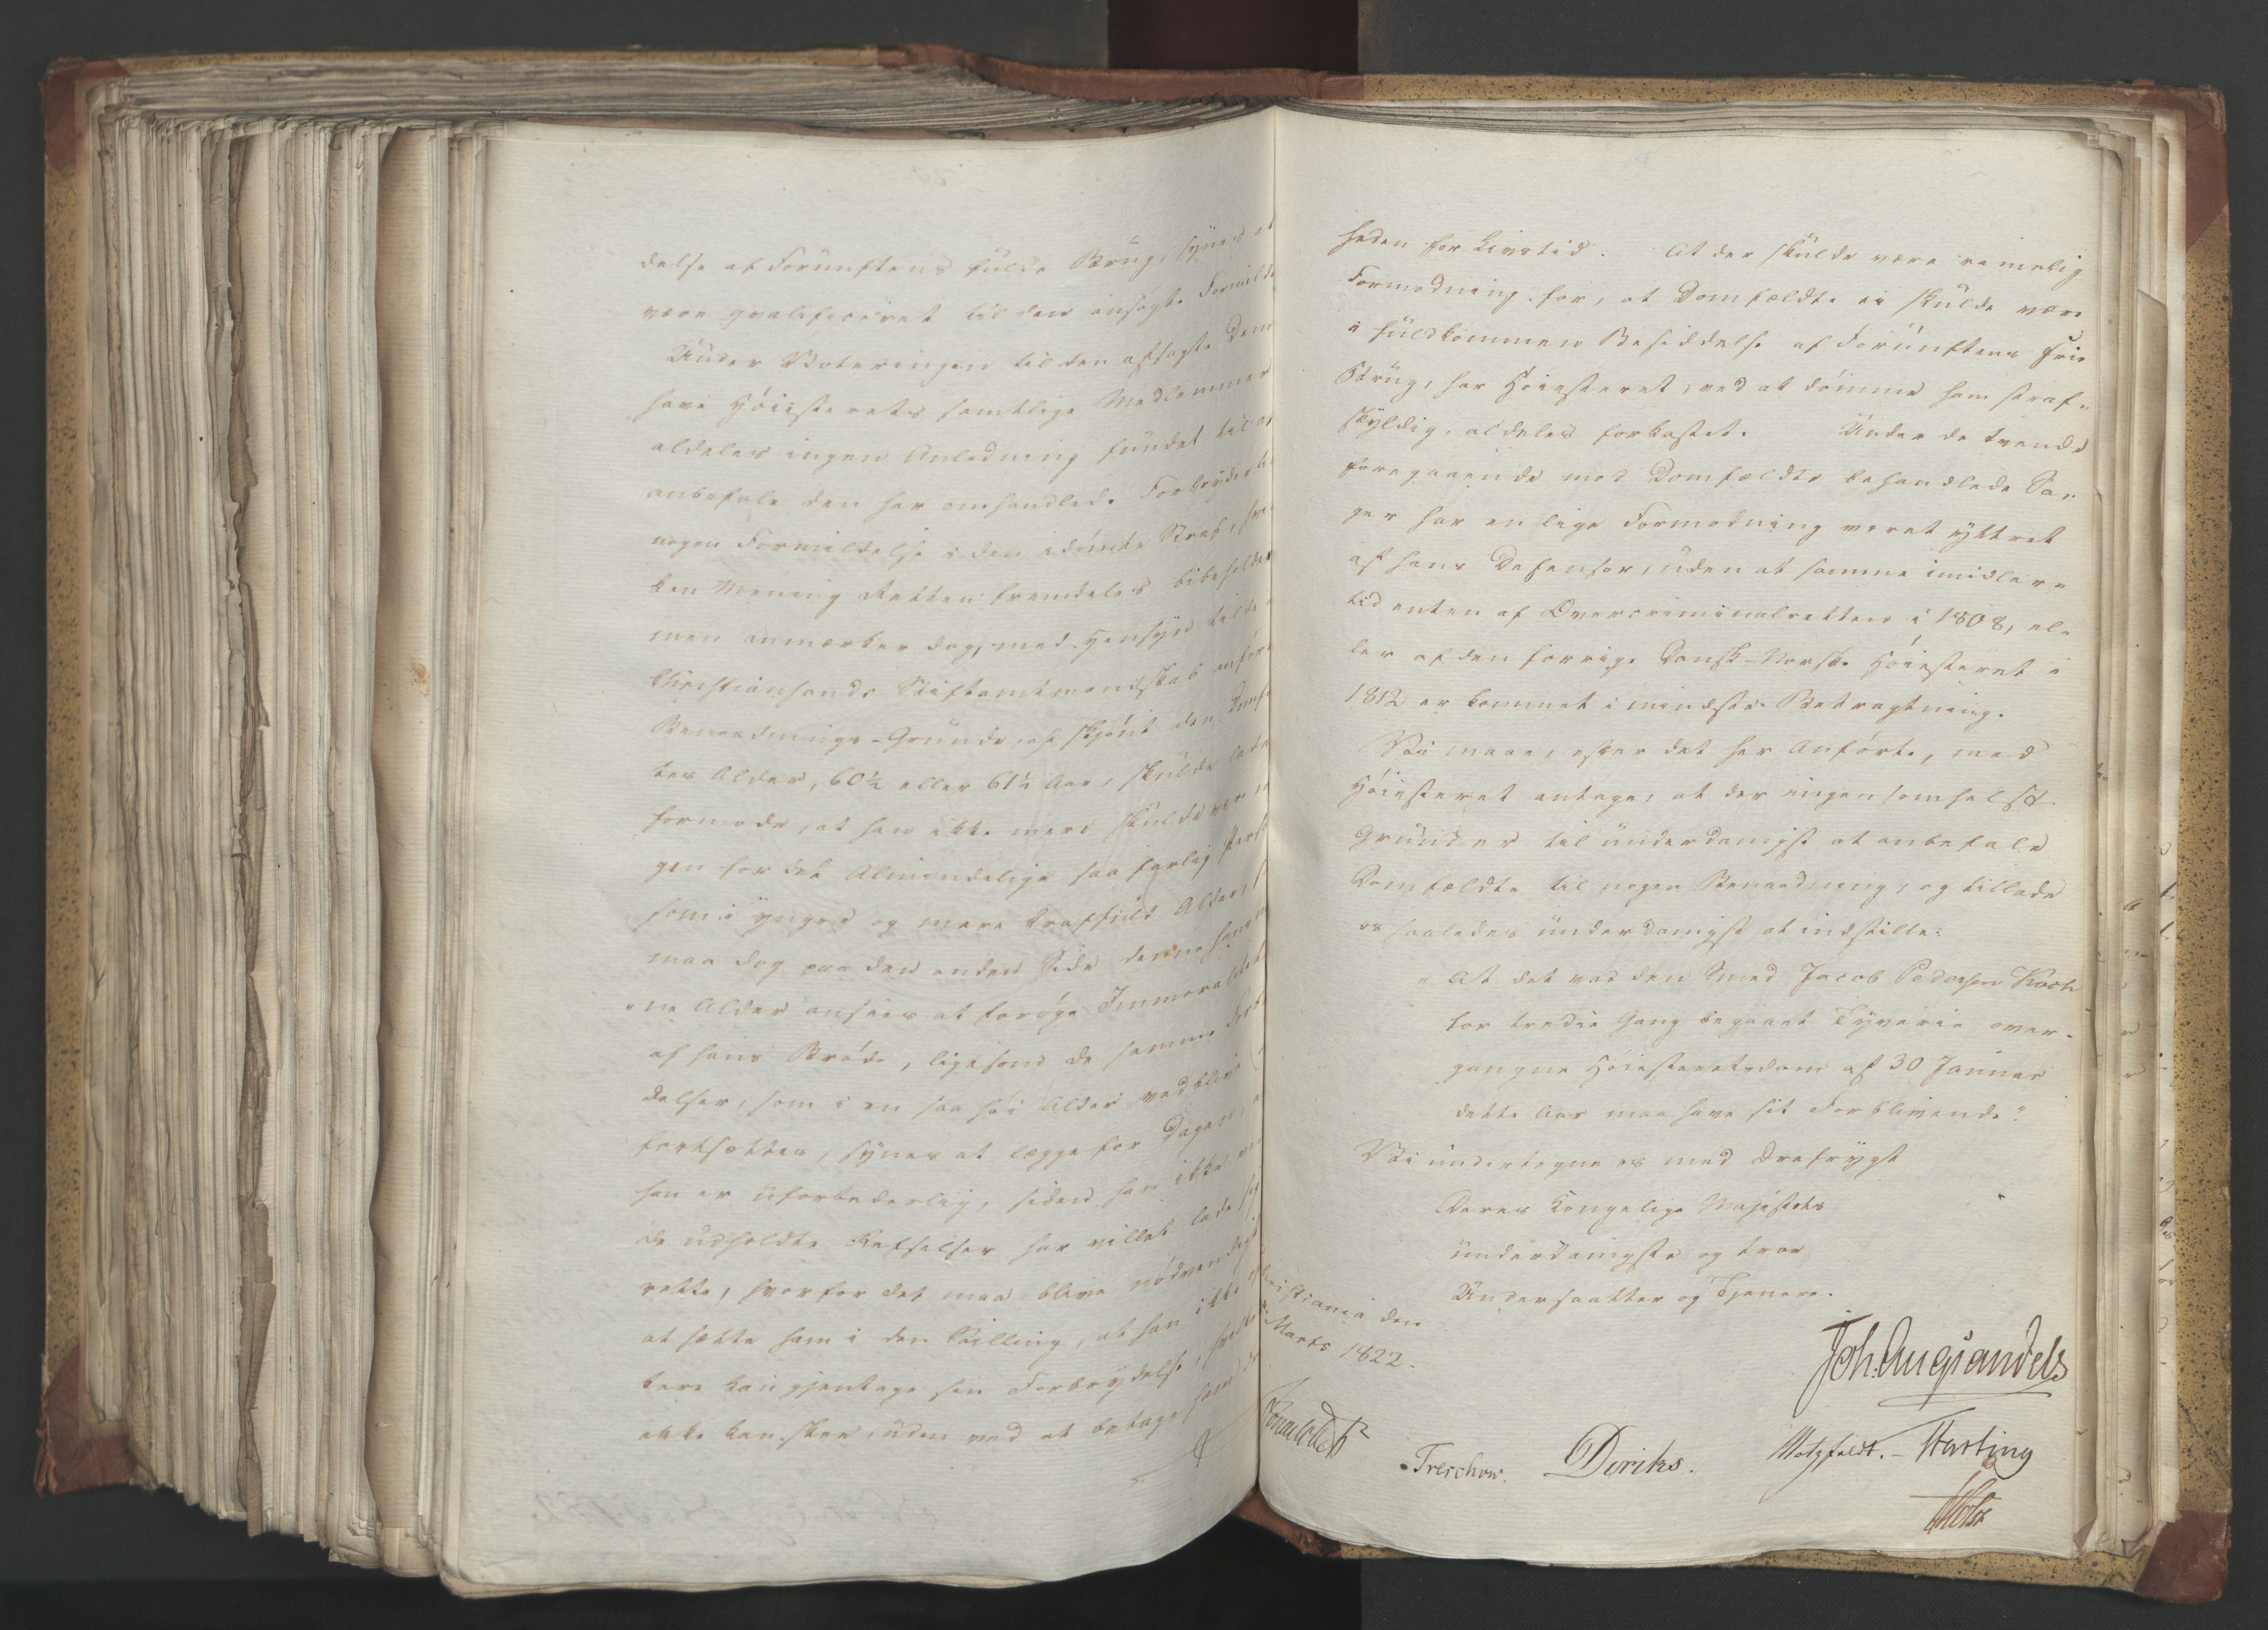 delse af Forunftens fulde Brug, synes at
være qvalificeret til den ansøgte Formild
Under Voteringen til den afsagte Dom
have Høiesterets samtlige Medlemmer
aldeles ingen Anledning fundet til at
anbefale den her omhandlede Forbryder til
nogen Formildelse i den idømte Straf, hvil
ken Mening Retten fremdeles bibeholder
men anmærker dog, med Hensyn til de
Christiansands Stiftamtmandskab anfør
Benaadnings-Grunde, at skjønt den Domf
tes Alder, 60½ eller 61½ Aar, skulde lade
formode, at han ikke mere skulde være
gen for det Almindelige saa farlig Pers
som i yngre og mere kraftfuld Alder,
maa dog paa den anden Side denne hans
ne Alder ansees at forøge Immoralitet
af hans Brøde, ligesom de samme Forbr
delser, som i en saa høi Alder vedblive
fortsættes, synes at lægge for Dagen, at
han er uforbederlig, siden han ikke ved
de udholdte Revselser har villet lade sig
rette, hvorfor det maa blive nødvendigt
at sætte ham i den Stilling, at han ikke of
tere kan gjentage sin Forbrydelse, hvilket
ikke kan skee, uden ved at betage ham Fri
heden for Livstid. At der skulde være rimelig
Formodning for, at Domfældte ei skulde være
i fuldkommen Besiddelse af Forunftens frie
Brug, har Høiesteret, ved at dømme ham straf-
skyldig, aldeles forkastet. Under de tvende
foregaaende mod Domfældte behandlede Sa-
ger har en lige Formodning været yttret
af hans Defensor, uden at samme imidler-
tid enten af Overcriminalretten i 1808, el-
ler af den forrige Dansk-Norske Høiesteret i
1812 er kommet i mindste Betragtning.
Vi maae, efter det her Anførte, med
Høiesteret antage, at der ingensomhelst
Grund er til underdanigst at anbefale
Domfældte til nogen Benaadning, og tillade
os saaledes underdanigst at indstille:
"At det ved den Smed Jacob Pedersen Koch
for tredie Gang begaaet Tyverie over-
gangne Høiesteretsdom af 30 Januar
dette Aar maa have sit Forblivende"
Vi undertegne os med Ærefrygt
Deres Kongelige Majestets
underdanigste og troe
Undersaatter og Tjenere.
Christiania den
Marts 1822.
Joh. Aug. Sandels
Treschow. Diriks. Motzfeldt. Hasting
Holst